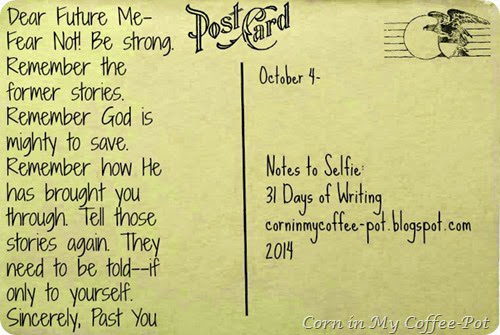 Dear Future Me-
Fear Not! Be strong.
Remember the
former stories.
Remember God is
mighty to save.
Remember how He
has brought you
through. Tell those
stories again. They
need to be told--if
only to yourself.
Sincerely, Past You
Post Card
October 4-
Notes to Selfie:
31 Days of Writing
corninmycoffee-pot.blogspot.com
2014
Corn in My Coffee-Pot